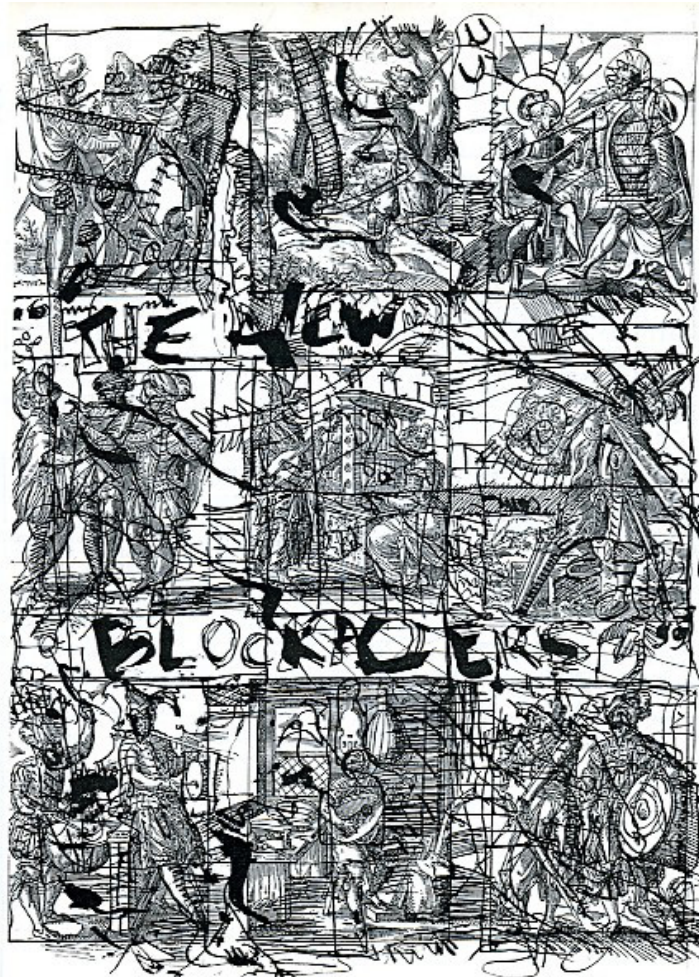 "THE NEW
BLOCKADERS"